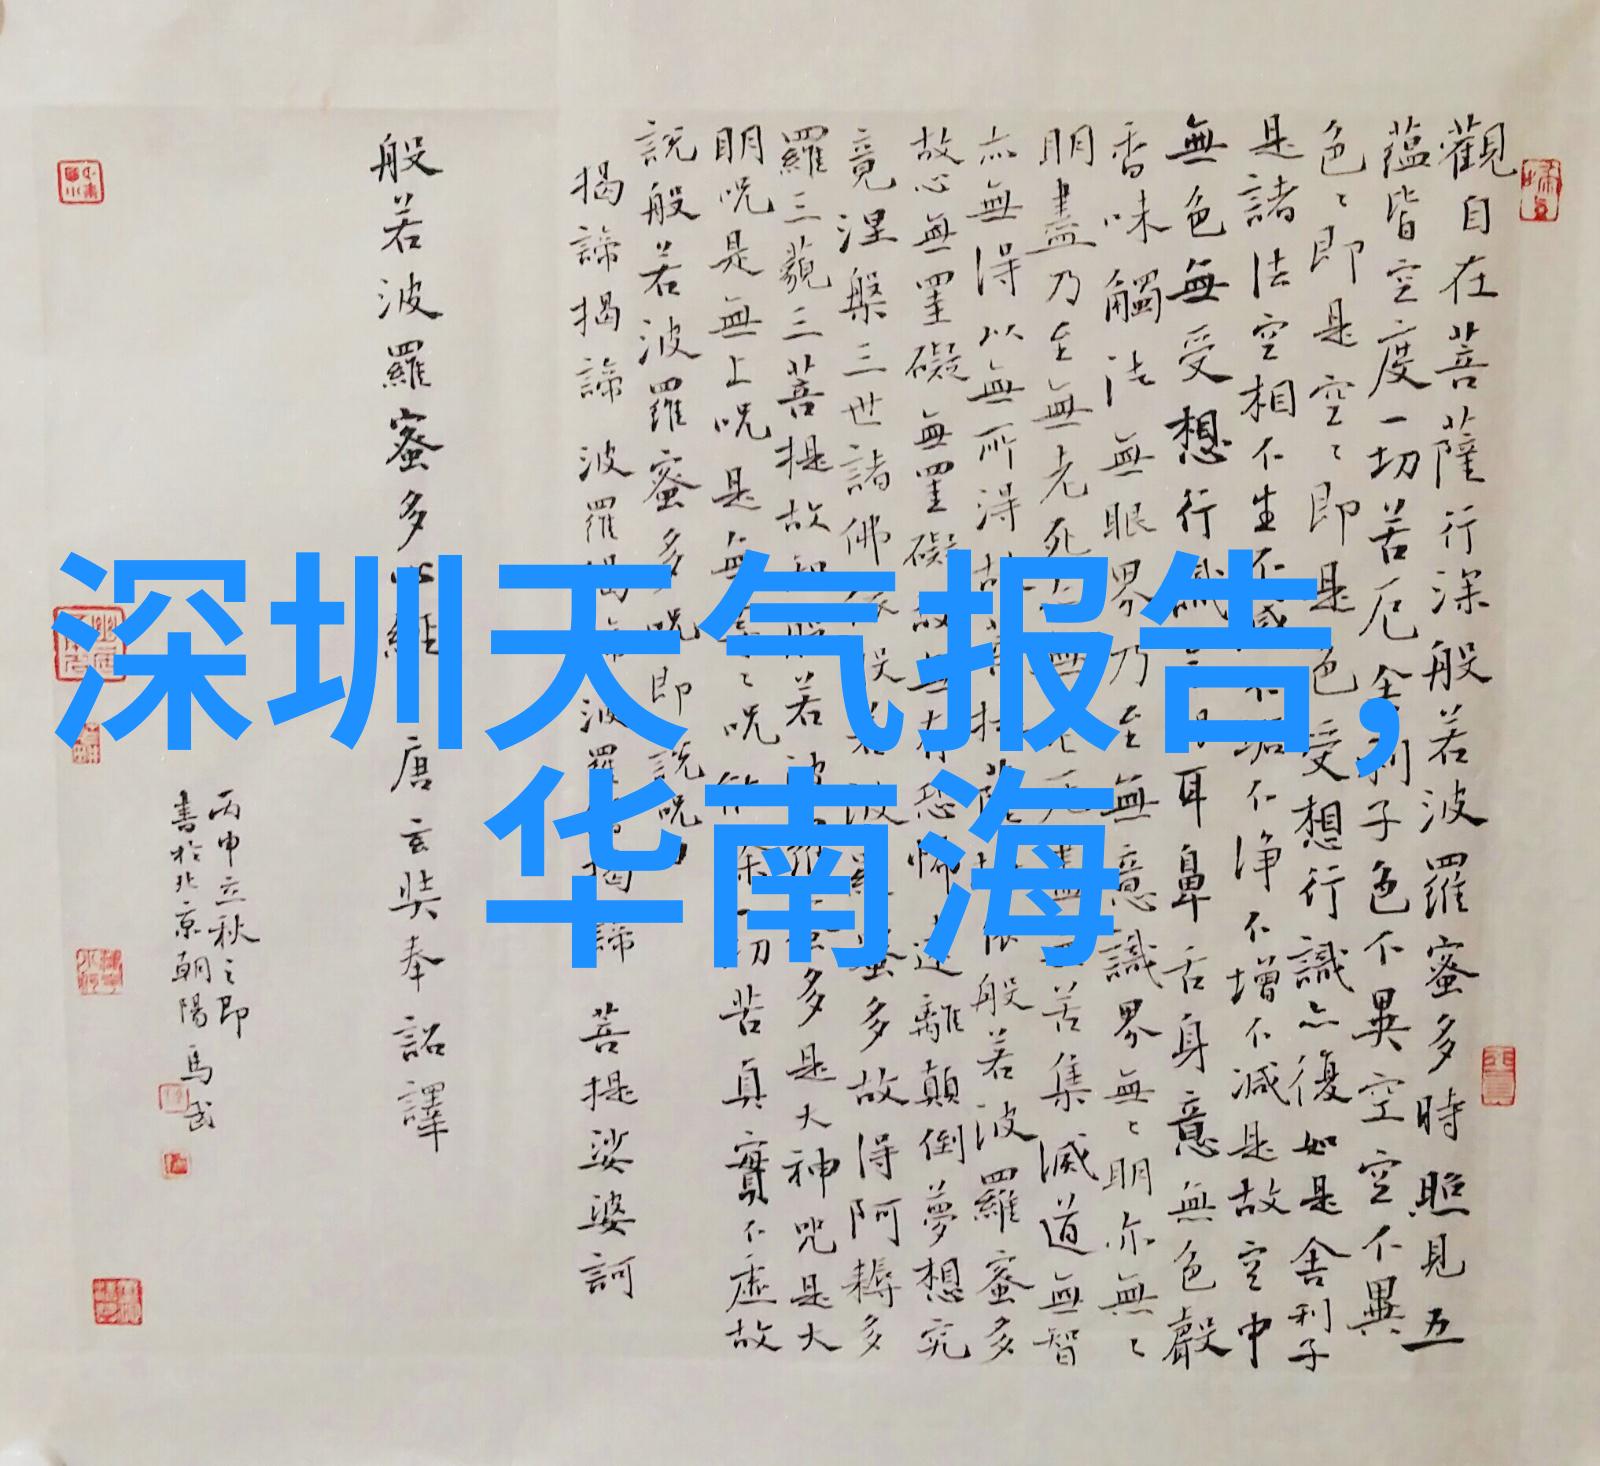 深圳天气报告,
华南海
觀自在菩薩行深般若波羅蜜多時照見五
蘊皆空度一切苦厄舍利子色不異空空不異
色〻即是空〻即是色受想行識亦復如是舍利子
是諸法空相不生不滅不垢不淨不增不減是故空中
無色無受想行識耳鼻舌身意無色聲
香味觸法無眼界乃至無意識界無〻明亦無〻
明盡乃至無老死亦無老死盡無苦集滅道無智
亦無得以無所得故依般若波羅蜜多
故心無罣礙無罣礙故無有恐怖遠離顛倒夢想究
竟涅槃三世諸佛依般若波羅蜜多故得阿耨多
羅三藐三菩提故知般若波羅蜜多是大神咒是大
明呪是無上呪是無〻呪能除一切苦真實不虛故
說般若波羅蜜多呪即說呪曰
揭諦揭諦 波羅揭諦 波羅揭諦 菩提娑婆訶
般若波羅蜜多心經 唐玄奘奉詔譯
丙申立秋之即
書於北京朝陽馬武